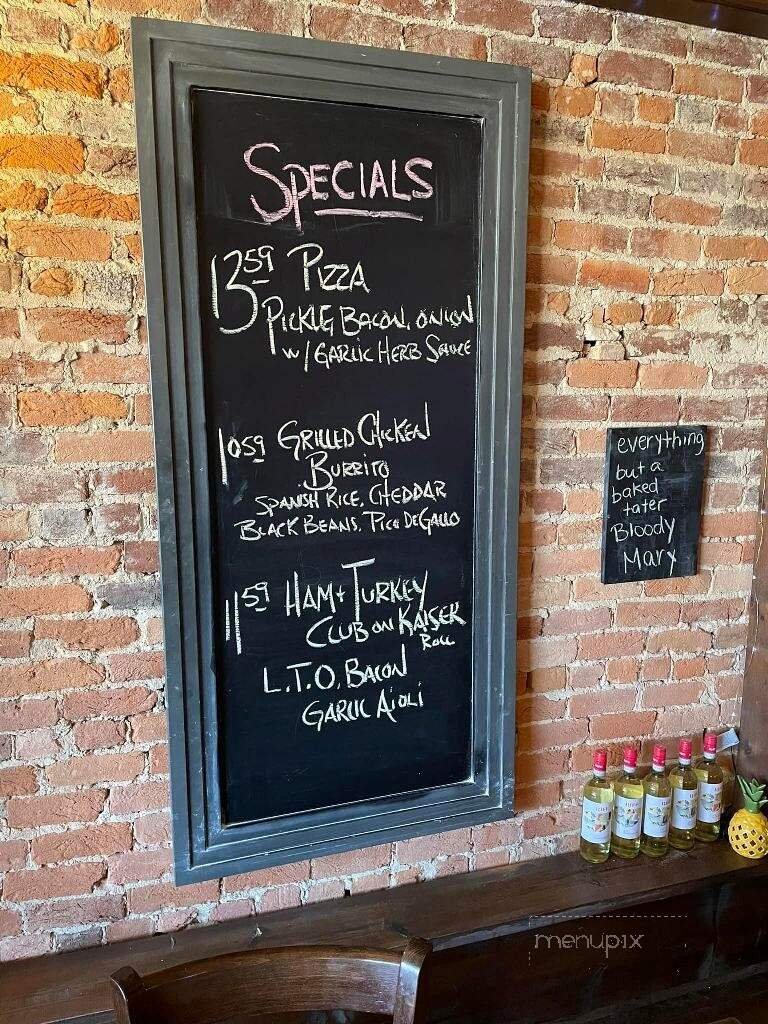 SPECIALS
13.59 PIZZA
PICKLE, BACON, ONION
W/ GARLIC HERB SAUCE
10.59 GRILLED CHICKEN
BURRITO
SPANISH RICE, CHEDDAR
BLACK BEANS, PICO DE GALLO
11.59 HAM + TURKEY
CLUB ON KAISER
ROLL
L.T.O, BACON
GARLIC AIOLI
everything
but a
baked
tater
Bloody
Mary
menupix